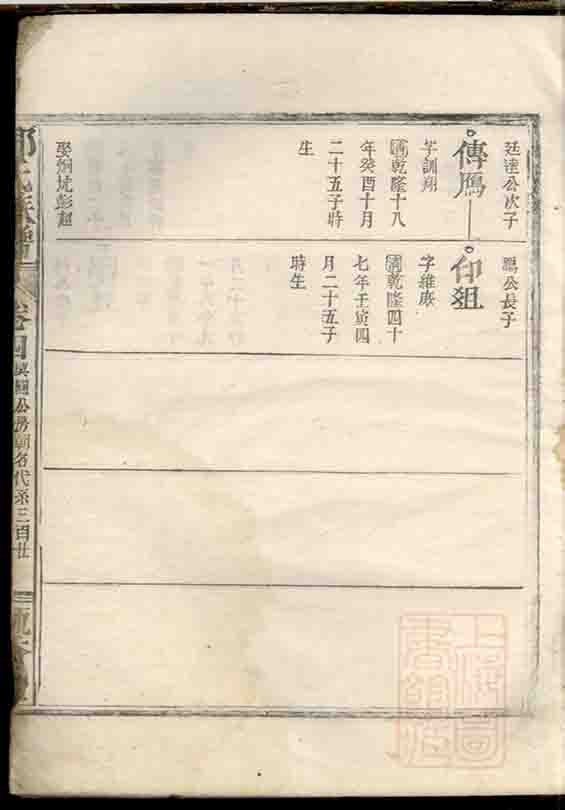 廷達公次子
傳鴈
字訓翔
清乾隆十八
年癸酉十月
二十五子時
生
娶炯坑彭超
鴈公長子
印
字維
清乾隆四十
七年壬寅四
月二十五子
時生
氏族譜
卷四
公房
名代系三百廿
上海圖書館藏